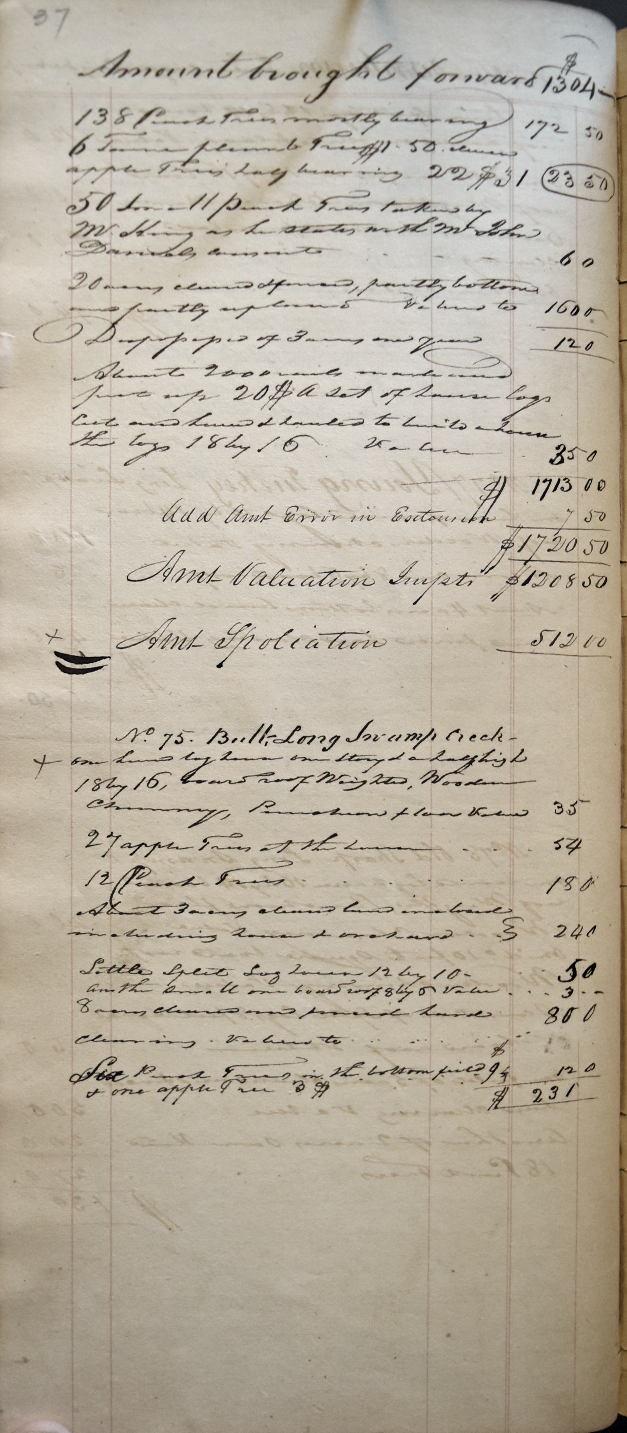 37
Amount brought forward $1304
138 Peach Trees mostly bearing 172 50
6 Tame plumb Trees $1.50. eleven
apple Trees half bearing 22 $31 23 50
50 dm-11 peach Trees taken by
Mr King as he states with Mr John
Daniels consent 60
20 acres cleared & fenced, partly bottom
and partly upland Valued to 1600
Disposs'd of 3 acres one year 120
About 2000 rails made and
put up 20$ A set of house logs
Cut and hewed & hauled to build a house
the logs 18 by 16 Value 350
$ 1713 00
Add Amt Error in Extension 7 50
$1720 50
Amt Valuation Impts $1208 50
+ Amt Spoliation 512 00
No 75. Bull-Long Swamp Creek-
+ one hewed log house one story & a half high
18 by 16, board roof Weighted, Wooden
Chimney, Puncheon floor Value 35
27 apple Trees at the house 54
12 Peach Trees 180
About 3 acres cleared land enclosed
including house & orchard 240
Little Split Log house 12 by 10- 50
another small one board roof 8 by 8 Value 3
8 acres cleared and fenced land 800
clearing. Valued to
Six Peach Trees in the bottom field $9 4 120
& one apple Tree 3$ $ 231